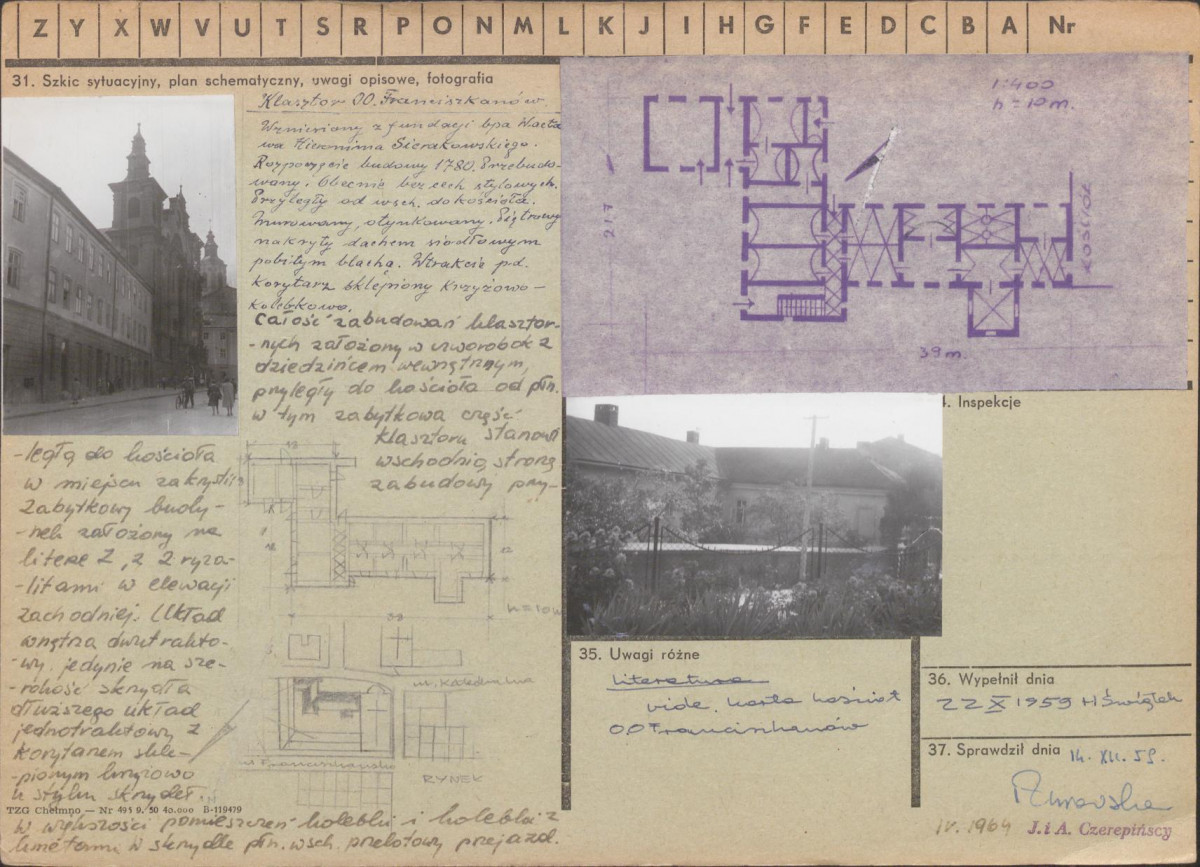 Z Y X W V U T S R P O N M L K J I H G F E D C B A Nr
31. Szkic sytuacyjny, plan schematyczny, uwagi opisowe, fotografia
Klasztor OO. Franciszkanów.
Wzniesiony z fundacji bpa Wacła
wa Hieronima Sierakowskiego.
Rozpoczęcie budowy 1780. Przebudo-
wany. Obecnie bez cech stylowych.
Przyległy od wsch. do kościoła.
Murowany, otynkowany. Piętrowy
nakryty dachem siodłowym
pobitym blachą. W trakcie pd.
korytarz sklepiony krzyżowo-
kolebkowo.
Całość zabudowań klasztor-
-nych założony w czworobok z
dziedzińcem wewnętrznym,
przyległy do kościoła od płn.
w tym zabytkowa część
klasztoru stanowi
wschodnią stronę
zabudowy przy-
-ległą do kościoła
w miejscu zakrystii
zabytkowy budy-
-nek założony na
literę Z, z 2 ryza-
-litami w elewacji
zachodniej. Układ
wnętrza dwutrakto-
-wy, jedynie na sze-
-rokość skrzydła
dłuższego układ
jednotraktowy z
korytarzem skle-
-pionym krzyżowo
u styku skrzydeł.
w większości pomieszczeń kolebki i kolebki z
lunetami w skrzydle płn. wsch. przelotowy przejazd.
TZG Chełmno — Nr 495 9. 50 40.000 B-119479
1:400
h = 10 m.
217
KOŚCIÓŁ
39 m.
39
h = 10 m
ul. Katedralna
ul. Franciszkańska
RYNEK
34. Inspekcje
35. Uwagi różne
Literatura
vide, karta kościół
OO Franciszkanów
36. Wypełnił dnia
22 X 1959 H Świątek
37. Sprawdził dnia 14. XII. 59.
IV. 1964 J. i A. Czerepińscy